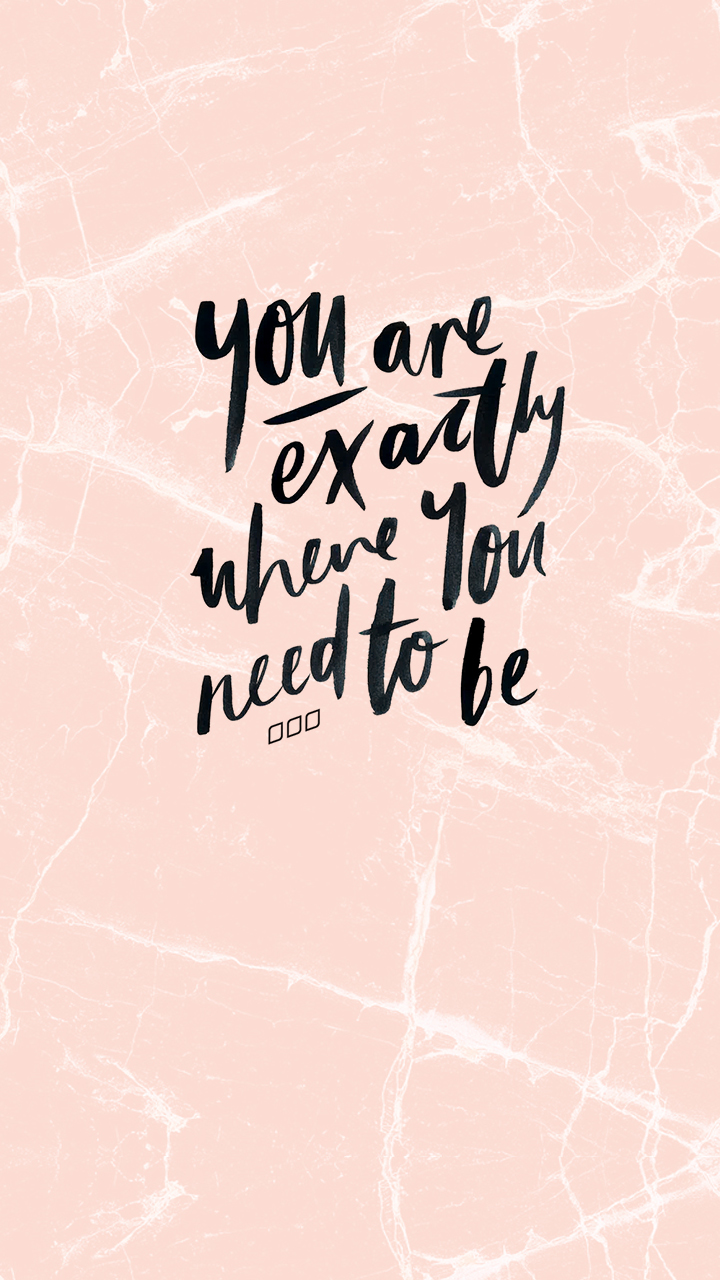 you are
exactly
where you
need to be